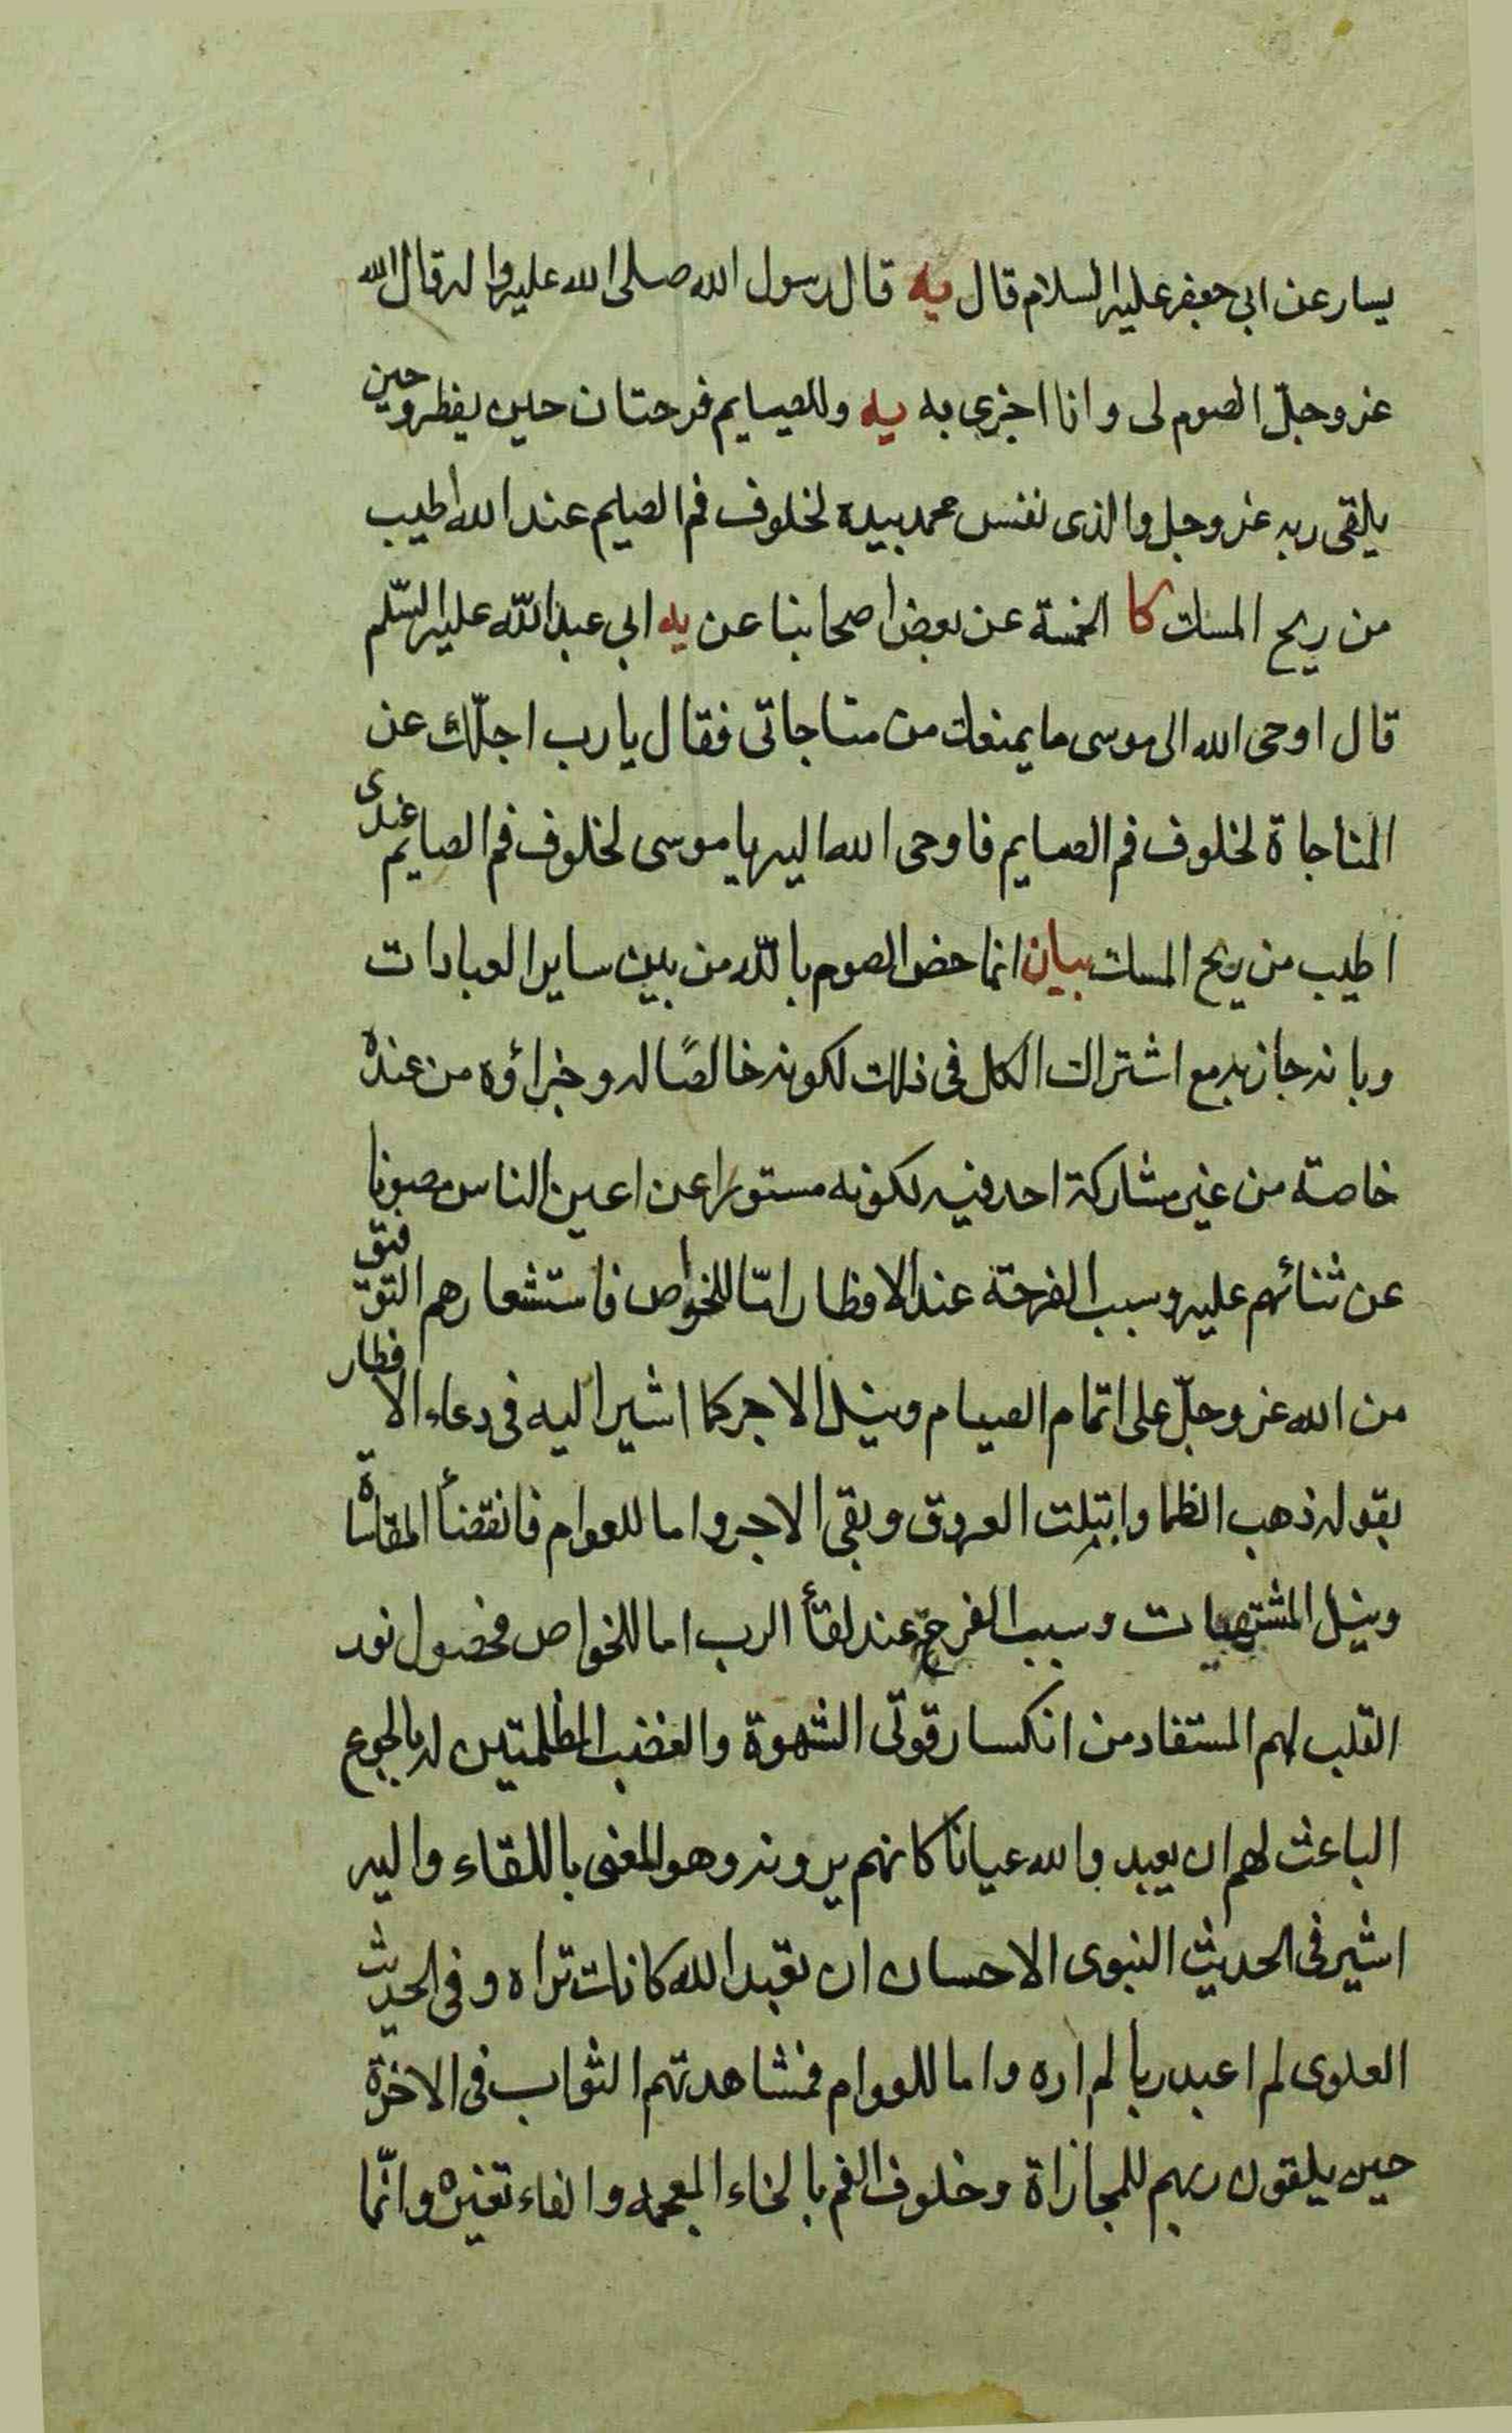 يسار عن ابى جعفر عليه السلام قال يه قال رسول الله صلى الله عليه واله قال الله
عز وجلّ الصوم لى وانا اجزى به يه وللصايم فرحتان حين يفطر وحين
يلقى ربه عز وجل والذى نفس محمد بيده لخلوف فم الصايم عند الله اطيب
من ريح المسك كا الخمسة عن بعض اصحابنا عن يه ابى عبد اللّه عليه السّلم
قال اوحى الله الى موسى ما يمنعك من مناجاتى فقال يا رب اجلّك عن
المناجاة لخلوف فم الصايم فاوحى الله اليه يا موسى لخلوف فم الصايم عندى
اطيب من ريح المسك بيان انما خص الصوم باللّه من بين ساير العبادات
وبانه جاز به مع اشتراك الكل فى ذلك لكونه خالصًا له وجزاؤه من عنده
خاصة من غير مشاركة احد فيه لكونه مستورا عن اعين الناس مصونا
عن ثنائهم عليه وسبب الفرحة عند الافطار امّا للخواص فاستشعارهم التوفيق
من الله عز وجلّ على اتمام الصيام ونيل الاجر كما اشير اليه فى دعاء الافطار
بقوله ذهب الظما وابتلت العروق وبقى الاجر واما للعوام فانقضأ المقاساة
ونيل المشتهيات وسبب الفرحة عند لقأ الرب اما للخواص فحصول نور
القلب لهم المستفاد من انكسار قوتى الشهوة والغضب المظلمتين له بالجوع
الباعث لهم ان يعبدوا لله عيانا كانهم يرونه وهو المعنى باللقاء واليه
اشير فى الحديث النبوى الاحسان ان تعبد الله كانك تراه وفى الحديث
العلوى لم اعبد ربا لم اره واما للعوام فمشاهدتهم الثواب فى الاخرة
حين يلقون ربهم للمجازاة وخلوف الفم بالخاء المعجمه والفاء تغيره وانّما